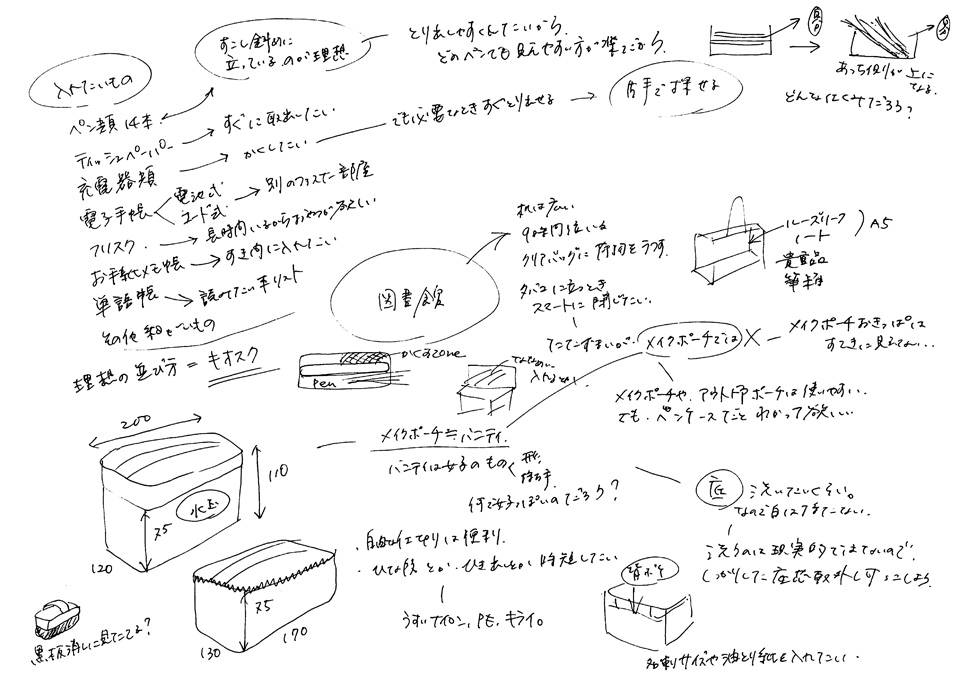 入れたいもの
すこし斜めに
立っているのが理想
とり出しやすくしたいから。
どのペンでも見えやすい方が楽だから。
あっち側が上に
なる。
どんなしくみだろう?
ペン類 14本
ティッシュペーパー
すぐに取出したい
充電器類
かくしたい
でも必要なときすぐとりだせる
片手で探せる
電子手帳
電池式
コード式
別のファスナー部屋
フリスク
長時間いるからおやつが欲しい
お手紙メモ帳
すき間に入れたい
単語帳
読みたい本リスト
その他 細々したもの
理想の並び方 = キオスク
図書館
机は広い
90分間位いる
クリアバッグに荷物をうつす
タバコに立つとき
スマートに閉じたい。
ルーズリーフ
ノート
貴重品
筆箱
A5
かくすzone
pen
メイクポーチでは
メイクポーチおきっぱは
すてきに見えない…
メイクポーチや、アウトドアポーチは使いやすい。
でも、ペンケースだとわかって欲しい
メイクポーチ≒バニティ。
バニティは女子のもの
形。
持ち手。
何で女子っぽいのだろう?
200
110
75
120
75
130
170
黒板消しに見えてる?
・自由な仕切りは便利。
うすいナイロン、PE、キライ。
底
洗いにくい。
洗うのは現実的ではないので、
名刺サイズや油とり紙を入れたい。